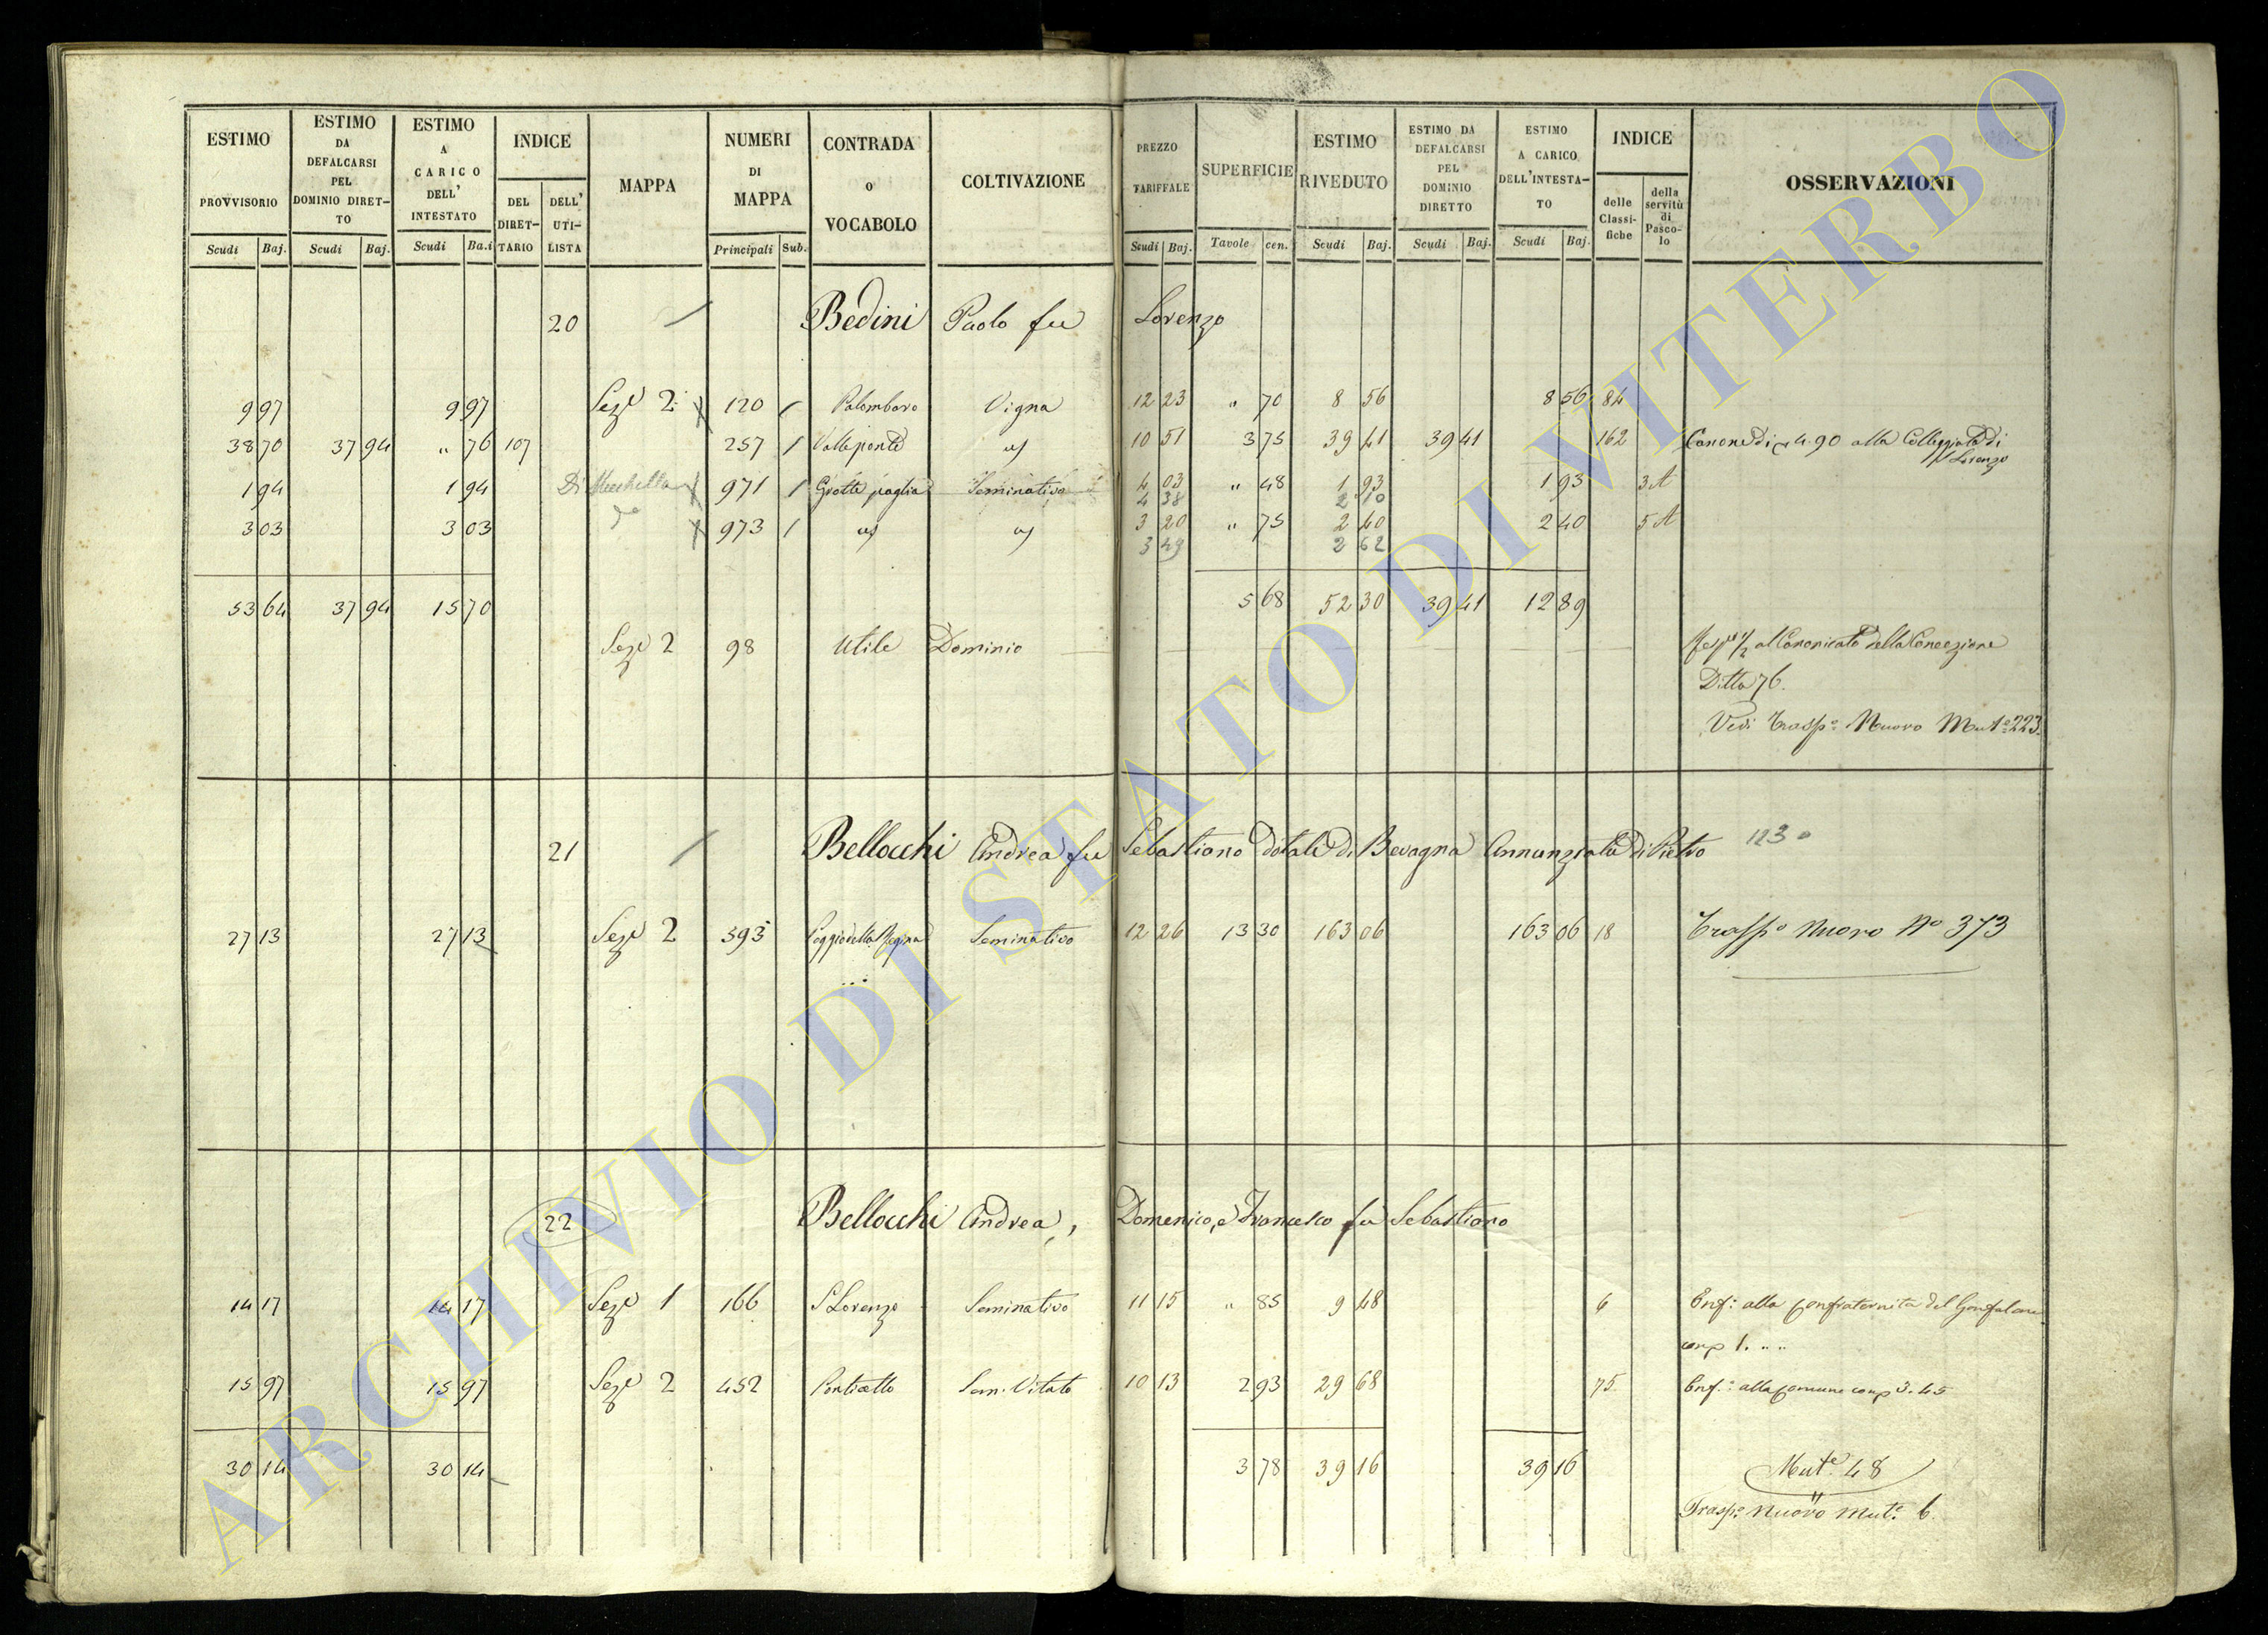 ESTIMO PROVVISORIO Scudi Baj.
ESTIMO DA DEFALCARSI PEL DOMINIO DIRETTO Scudi Baj.
ESTIMO A CARICO DELL' INTESTATO Scudi Ba.i
INDICE DEL DIRETTARIO DELL' UTILISTA
MAPPA
NUMERI DI MAPPA Principali Sub.
CONTRADA O VOCABOLO
COLTIVAZIONE
PREZZO TARIFFALE Scudi Baj.
SUPERFICIE Tavole cen.
ESTIMO RIVEDUTO Scudi Baj.
ESTIMO DA DEFALCARSI PEL DOMINIO DIRETTO Scudi Baj.
ESTIMO A CARICO DELL'INTESTATO Scudi Baj.
INDICE delle Classifiche della servitù di Pascolo
OSSERVAZIONI
20 Bedini Paolo fu Lorenzo
9 97 9 97 Seze 2 120 / Palombaro Vigna 12 23 " 70 8 56 8 56 84
38 70 37 94 " 76 107 257 / Valleponte 10 51 3 75 39 41 39 41 162 Canone di 4.90 alla Collegiata di S Lorenzo
1 94 1 94 971 / Grotte paglia Seminativo 4 03 " 48 1 93 1 93 3 A
4 38 2 10
3 03 3 03 973 / 3 20 " 75 2 40 2 40 5 A
3 49 2 62
53 64 37 94 15 70 5 68 52 30 39 41 12 89
Seze 2 98 Utile Dominio al Canonicato della Concezione
Ditta 76.
Vedi Trasp.o Nuovo Mut.e 223.
21 Bellocchi Andrea fu Sebastiano dotale di Bevagna Annunziata di Pietro 123
27 13 27 13 Seze 2 393 Poggio della Regina Seminativo 12 26 13 30 163 06 163 06 18 Trasp.o Nuovo No 373
22 Bellocchi Andrea, Domenico, e Francesco fu Sebastiano
14 17 14 17 Seze 1 166 S Lorenzo Seminativo 11 15 " 85 9 48 6 Enf: alla Confraternita del Gonfalone
corrp 1. " "
15 97 15 97 Seze 2 452 Ponticello Sem. Vitato 10 13 2 93 29 68 75 Enf: alla Comune corrp 3.45
30 14 30 14 3 78 39 16 39 16 Mut.e 48
Trasp.o Nuovo Mut.e 6.
ARCHIVIO DI STATO DI VITERBO